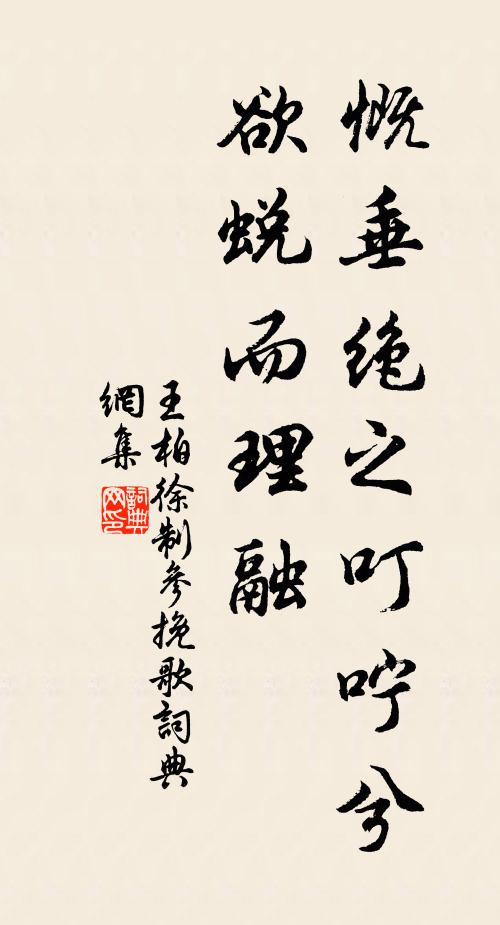 慨垂绝之叮咛兮
欲蜕而理融
王柏徐制参挽歌詞典
網集
詞典
网印